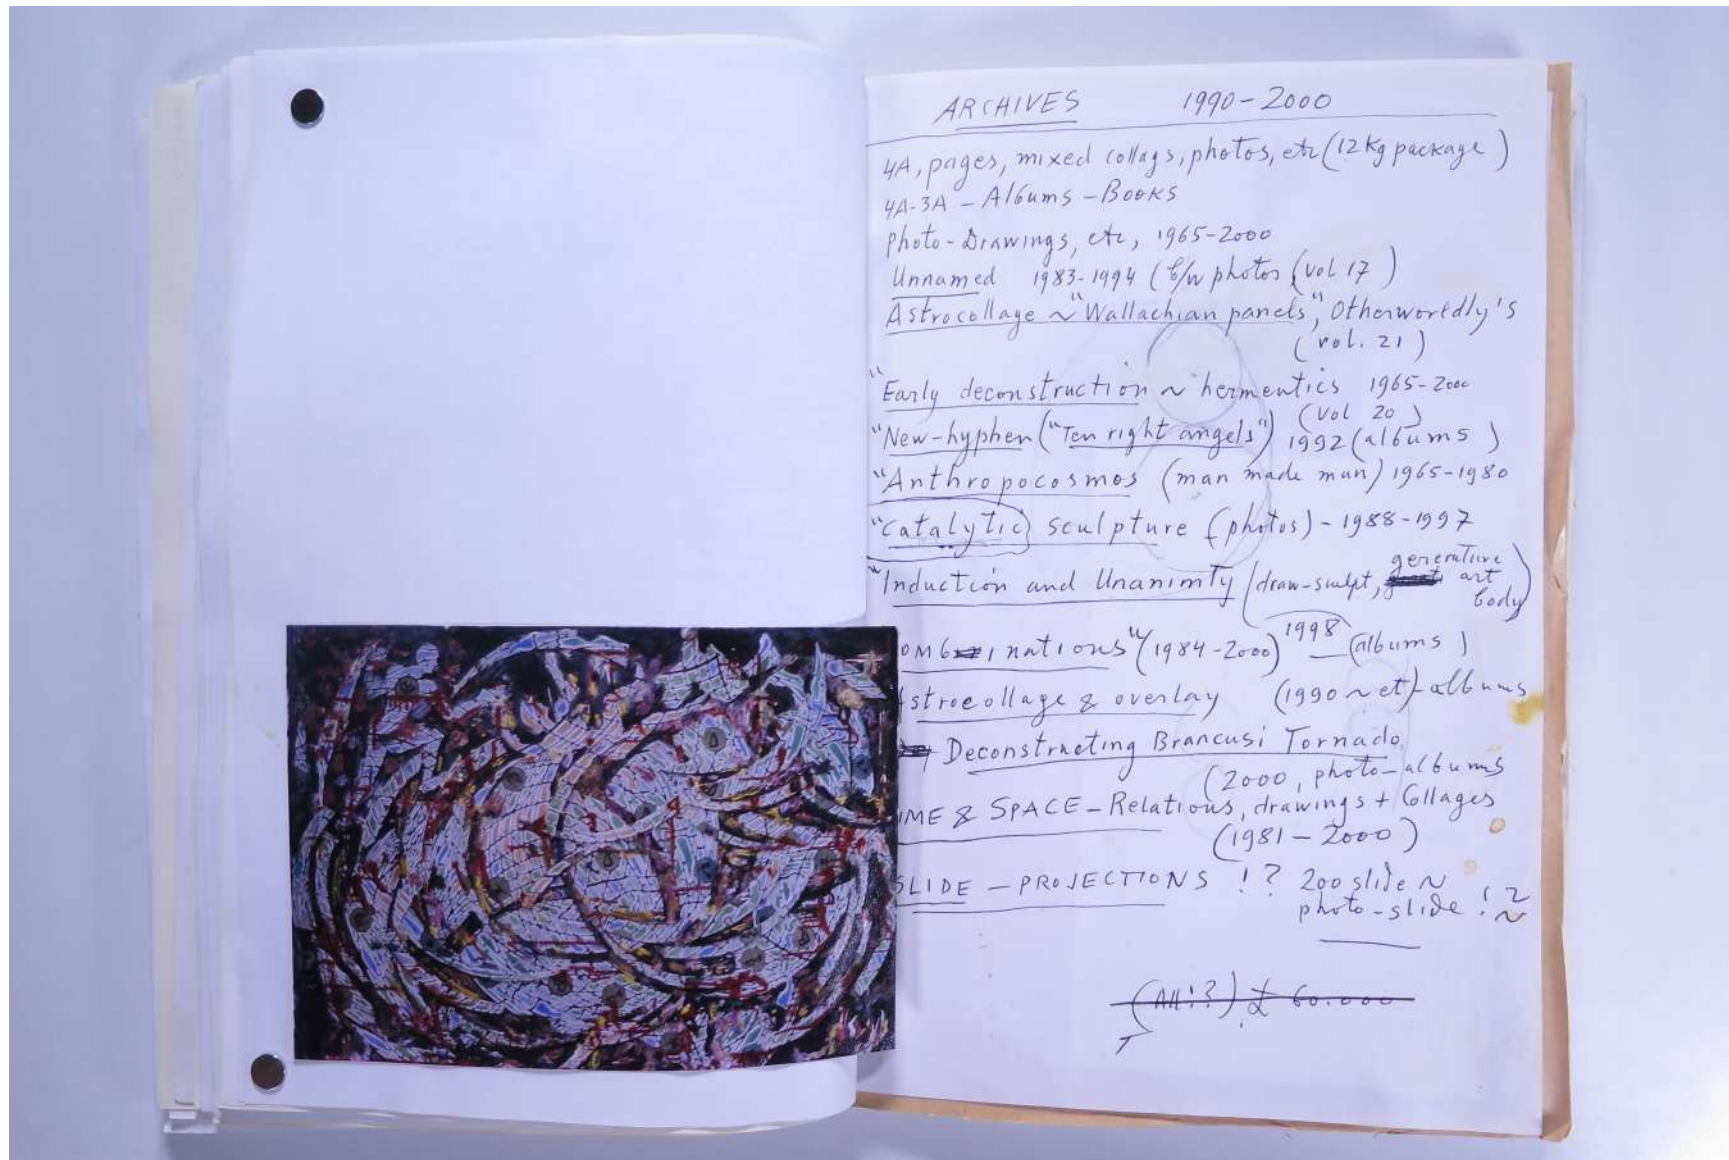 ARCHIVES 1990-2000
4A, pages, mixed collags, photos, etc (12 Kg package)
4A-3A - Albums - Books
photo-Drawings, etc, 1965-2000
Unnamed 1983-1994 (b/w photos (vol 17)
Astrocollage ~ "Wallachian panels", Otherworldly's
(vol. 21)
"Early deconstruction ~ hermentics 1965-2000
(vol 20)
"New-hyphen ("Ten right angels") 1992 (albums)
"Anthropocosmos (man made man) 1965-1980
"Catalytic sculpture (photos) - 1988-1997
generative
"Induction and Unanimty (draw-sculpt, art
body)
1998
ombinations" (1984-2000) (albums)
strocollage & overlay (1990 ~ et) - albums
Deconstructing Brancusi Tornado
(2000, photo-albums
IME & SPACE - Relations, drawings + Collages
(1981-2000)
SLIDE - PROJECTIONS !? 200 slide ~
photo-slide !?
(All!?) £ 60.000